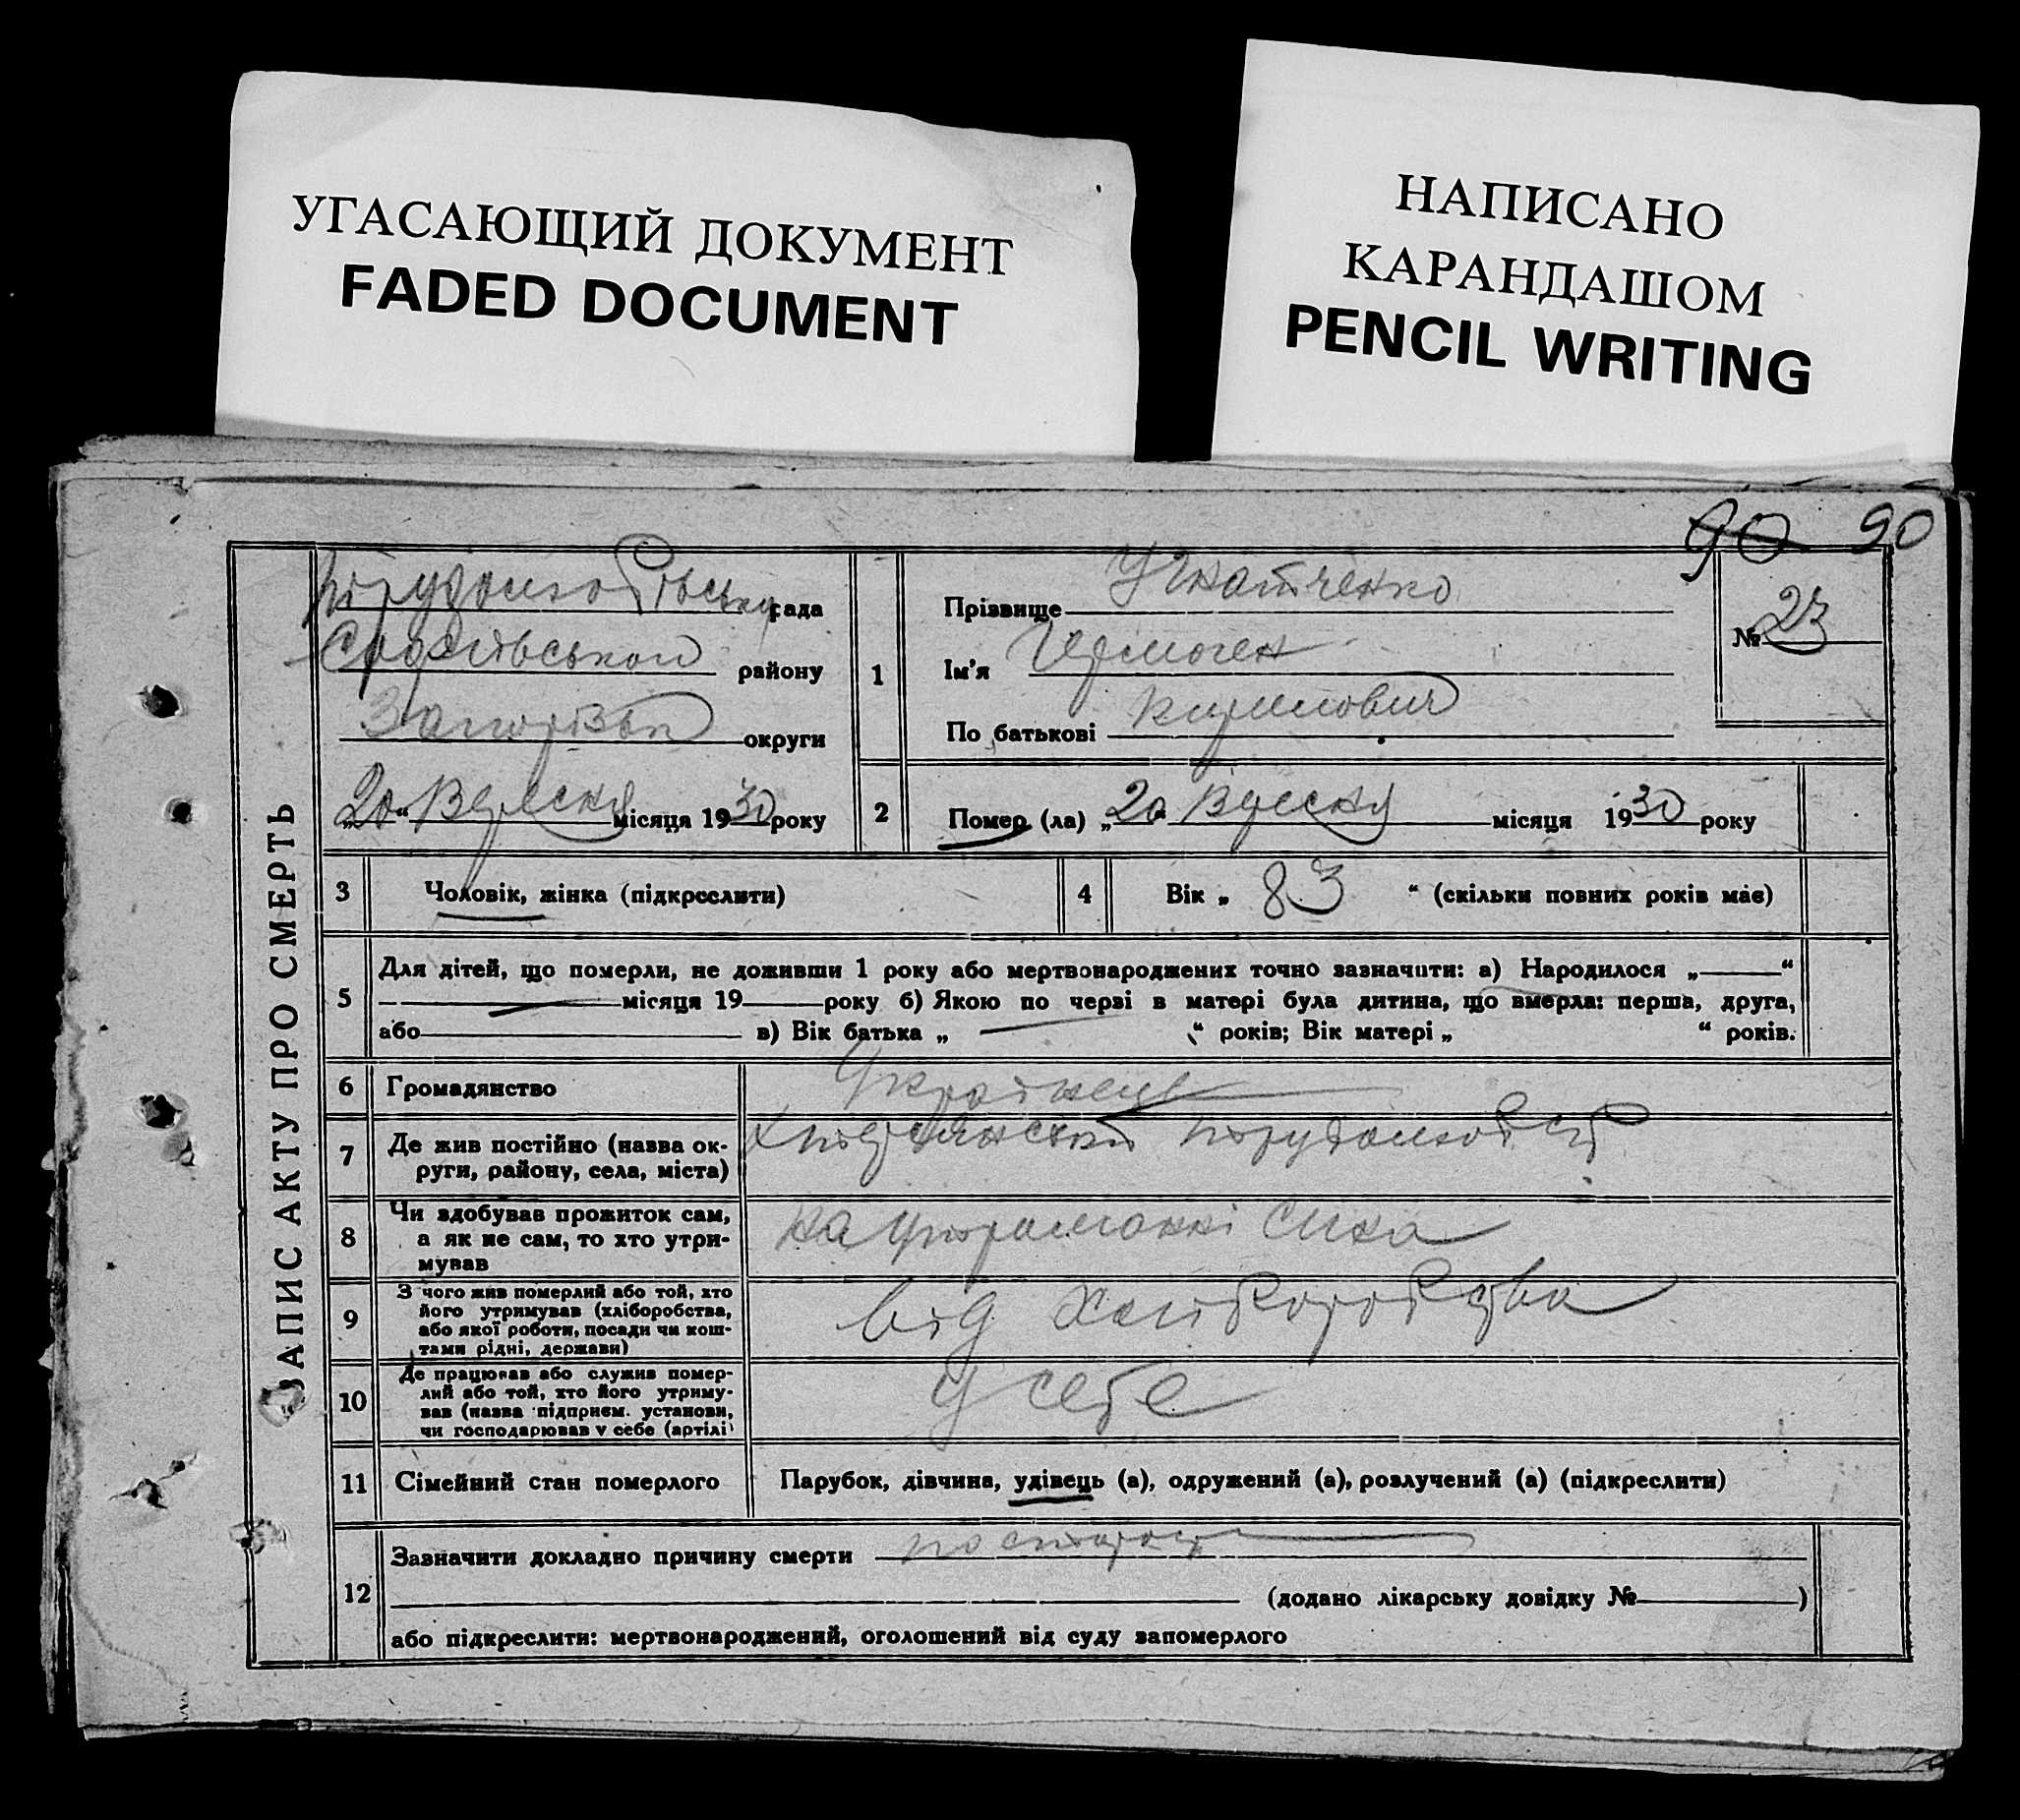 УГАСАЮЩИЙ ДОКУМЕНТ
FADED DOCUMENT
НАПИСАНО
КАРАНДАШОМ
PENCIL WRITING
90 90
ЗАПИС АКТУ ПРО СМЕРТЬ
рада
району
округи
„20“ Вересня місяця 1930 року
1
Прізвище Гнатченко
Ім'я Гермоген
По батькові Кирилович
№ 23
2 Помер (ла) „20“ Вересня місяця 1930 року
3 Чоловік, жінка (підкреслити)
4 Вік „ 83 “ (скільки повних років має)
5 Для дітей, що померли, не доживши 1 року або мертвонароджених точно зазначити: а) Народилося „ “
місяця 19 року б) Якою по черві в матері була дитина, що вмерла: перша, друга,
або в) Вік батька „ “ років; Вік матері „ “ років.
6 Громадянство Українець
7 Де жив постійно (назва ок-
руги, району, села, міста)
8 Чи здобував прожиток сам,
а як не сам, то хто утри-
мував
на утриманні сина
9 З чого жив померлий або той, хто
його утримував (хліборобства,
або якої роботи, посади чи кош-
тами рідні, держави)
від Хліборобства
10 Де працював або служив помер-
лий або той, хто його утриму-
вав (назва підприєм. установи,
чи господарював у себе (артілі)
У себе
11 Сімейний стан померлого Парубок, дівчина, удівець (а), одружений (а), розлучений (а) (підкреслити)
12 Зазначити докладно причину смерти
(додано лікарську довідку № )
або підкреслити: мертвонароджений, оголошений від суду запомерлого